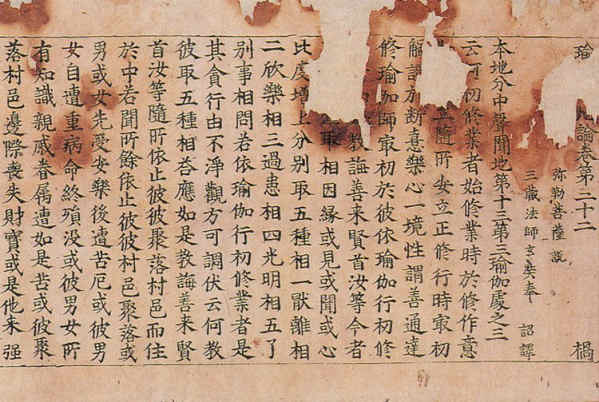 瑜論卷第三十二 禍
弥勒菩薩 說
三藏法師玄奘奉 詔譯
本地分中聲聞地第十三第三瑜伽處之三
云何初修業者始修業時於修作意
立隨所安立正修行時最初
觸證於断憙樂心一境性謂善通達
修瑜伽師最初於彼依瑜伽行初修
教誨善來賢首汝等今者
取相因緣或見或聞或心
比度增上分別取五種相一猒離相
二欣樂相三過患相四光明相五了
別事相問若依瑜伽行初修業者是
其貪行由不淨觀方可調伏云何教
彼取五種相答應如是教誨善來賢
首汝等隨所依止彼彼聚落村邑而住
於中若聞所餘依止彼彼村邑聚落或
男或女先受安樂後遭苦厄或彼男
女自遭重病命終殞没或彼男女所
有知識親戚眷属遭如是苦或彼聚
落村邑邊際喪失財寶或是他來强